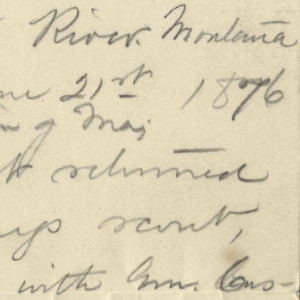 River Montana
ne 21st 1876
in g Maj
returned
scout,
with Gen. Cus-